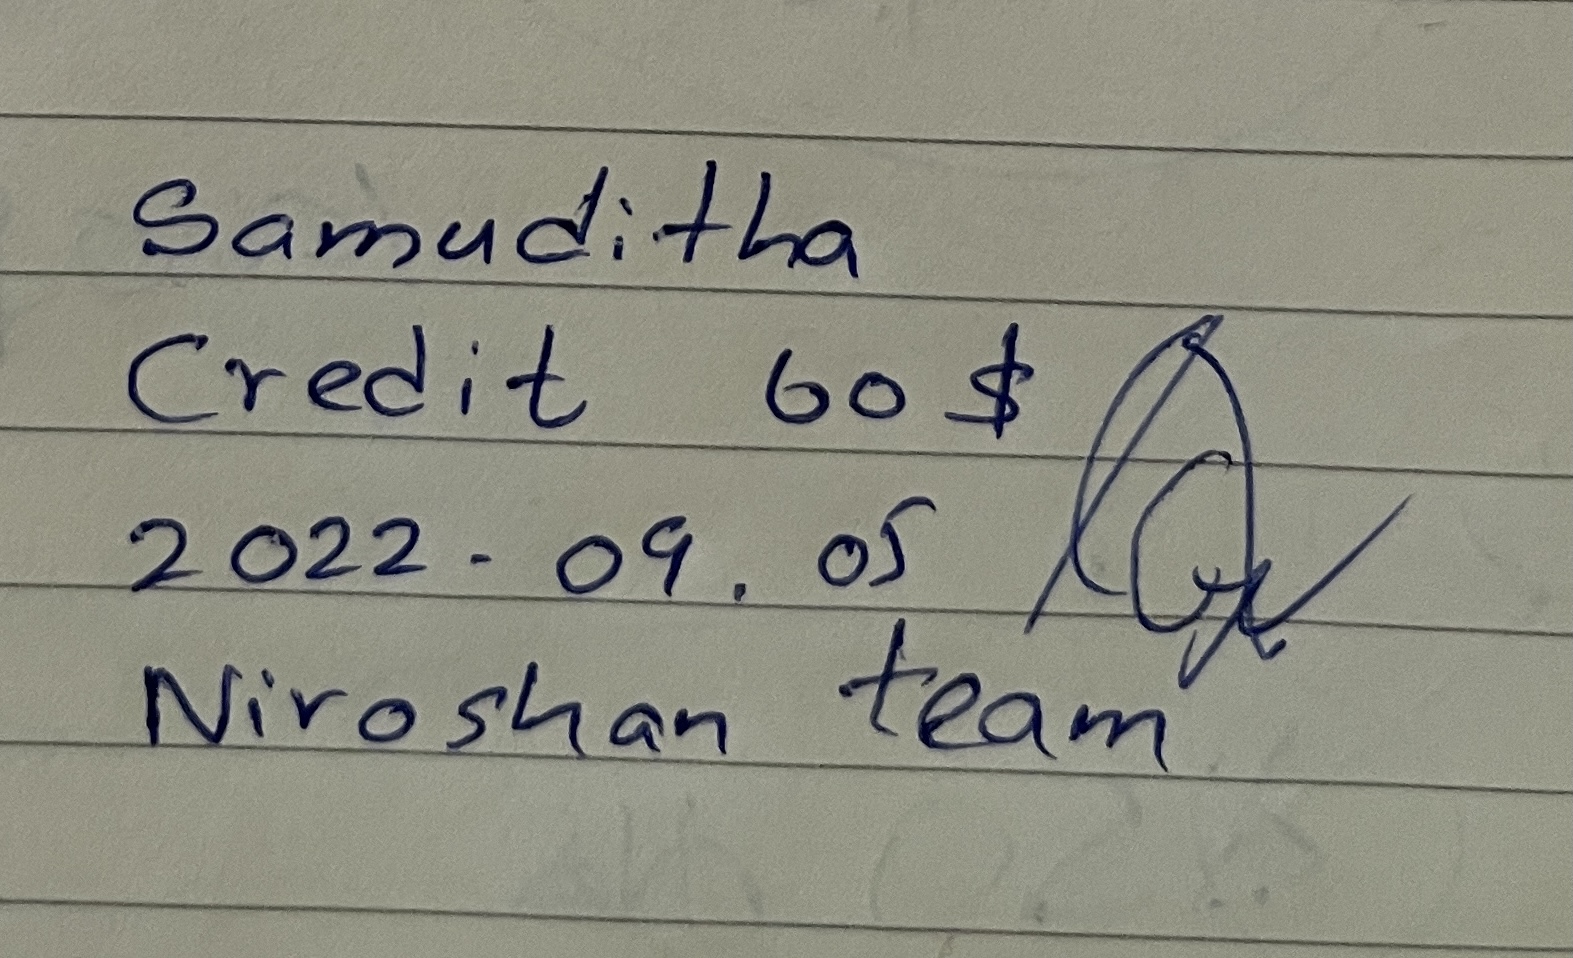 Samuditha
Credit 60 $
2022. 09. 05
Niroshan team